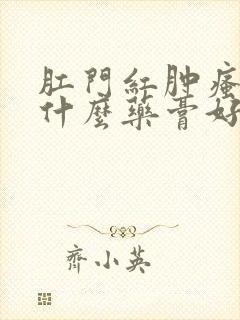 肛門紅肿瘙
什麼藥膏好
齊小英